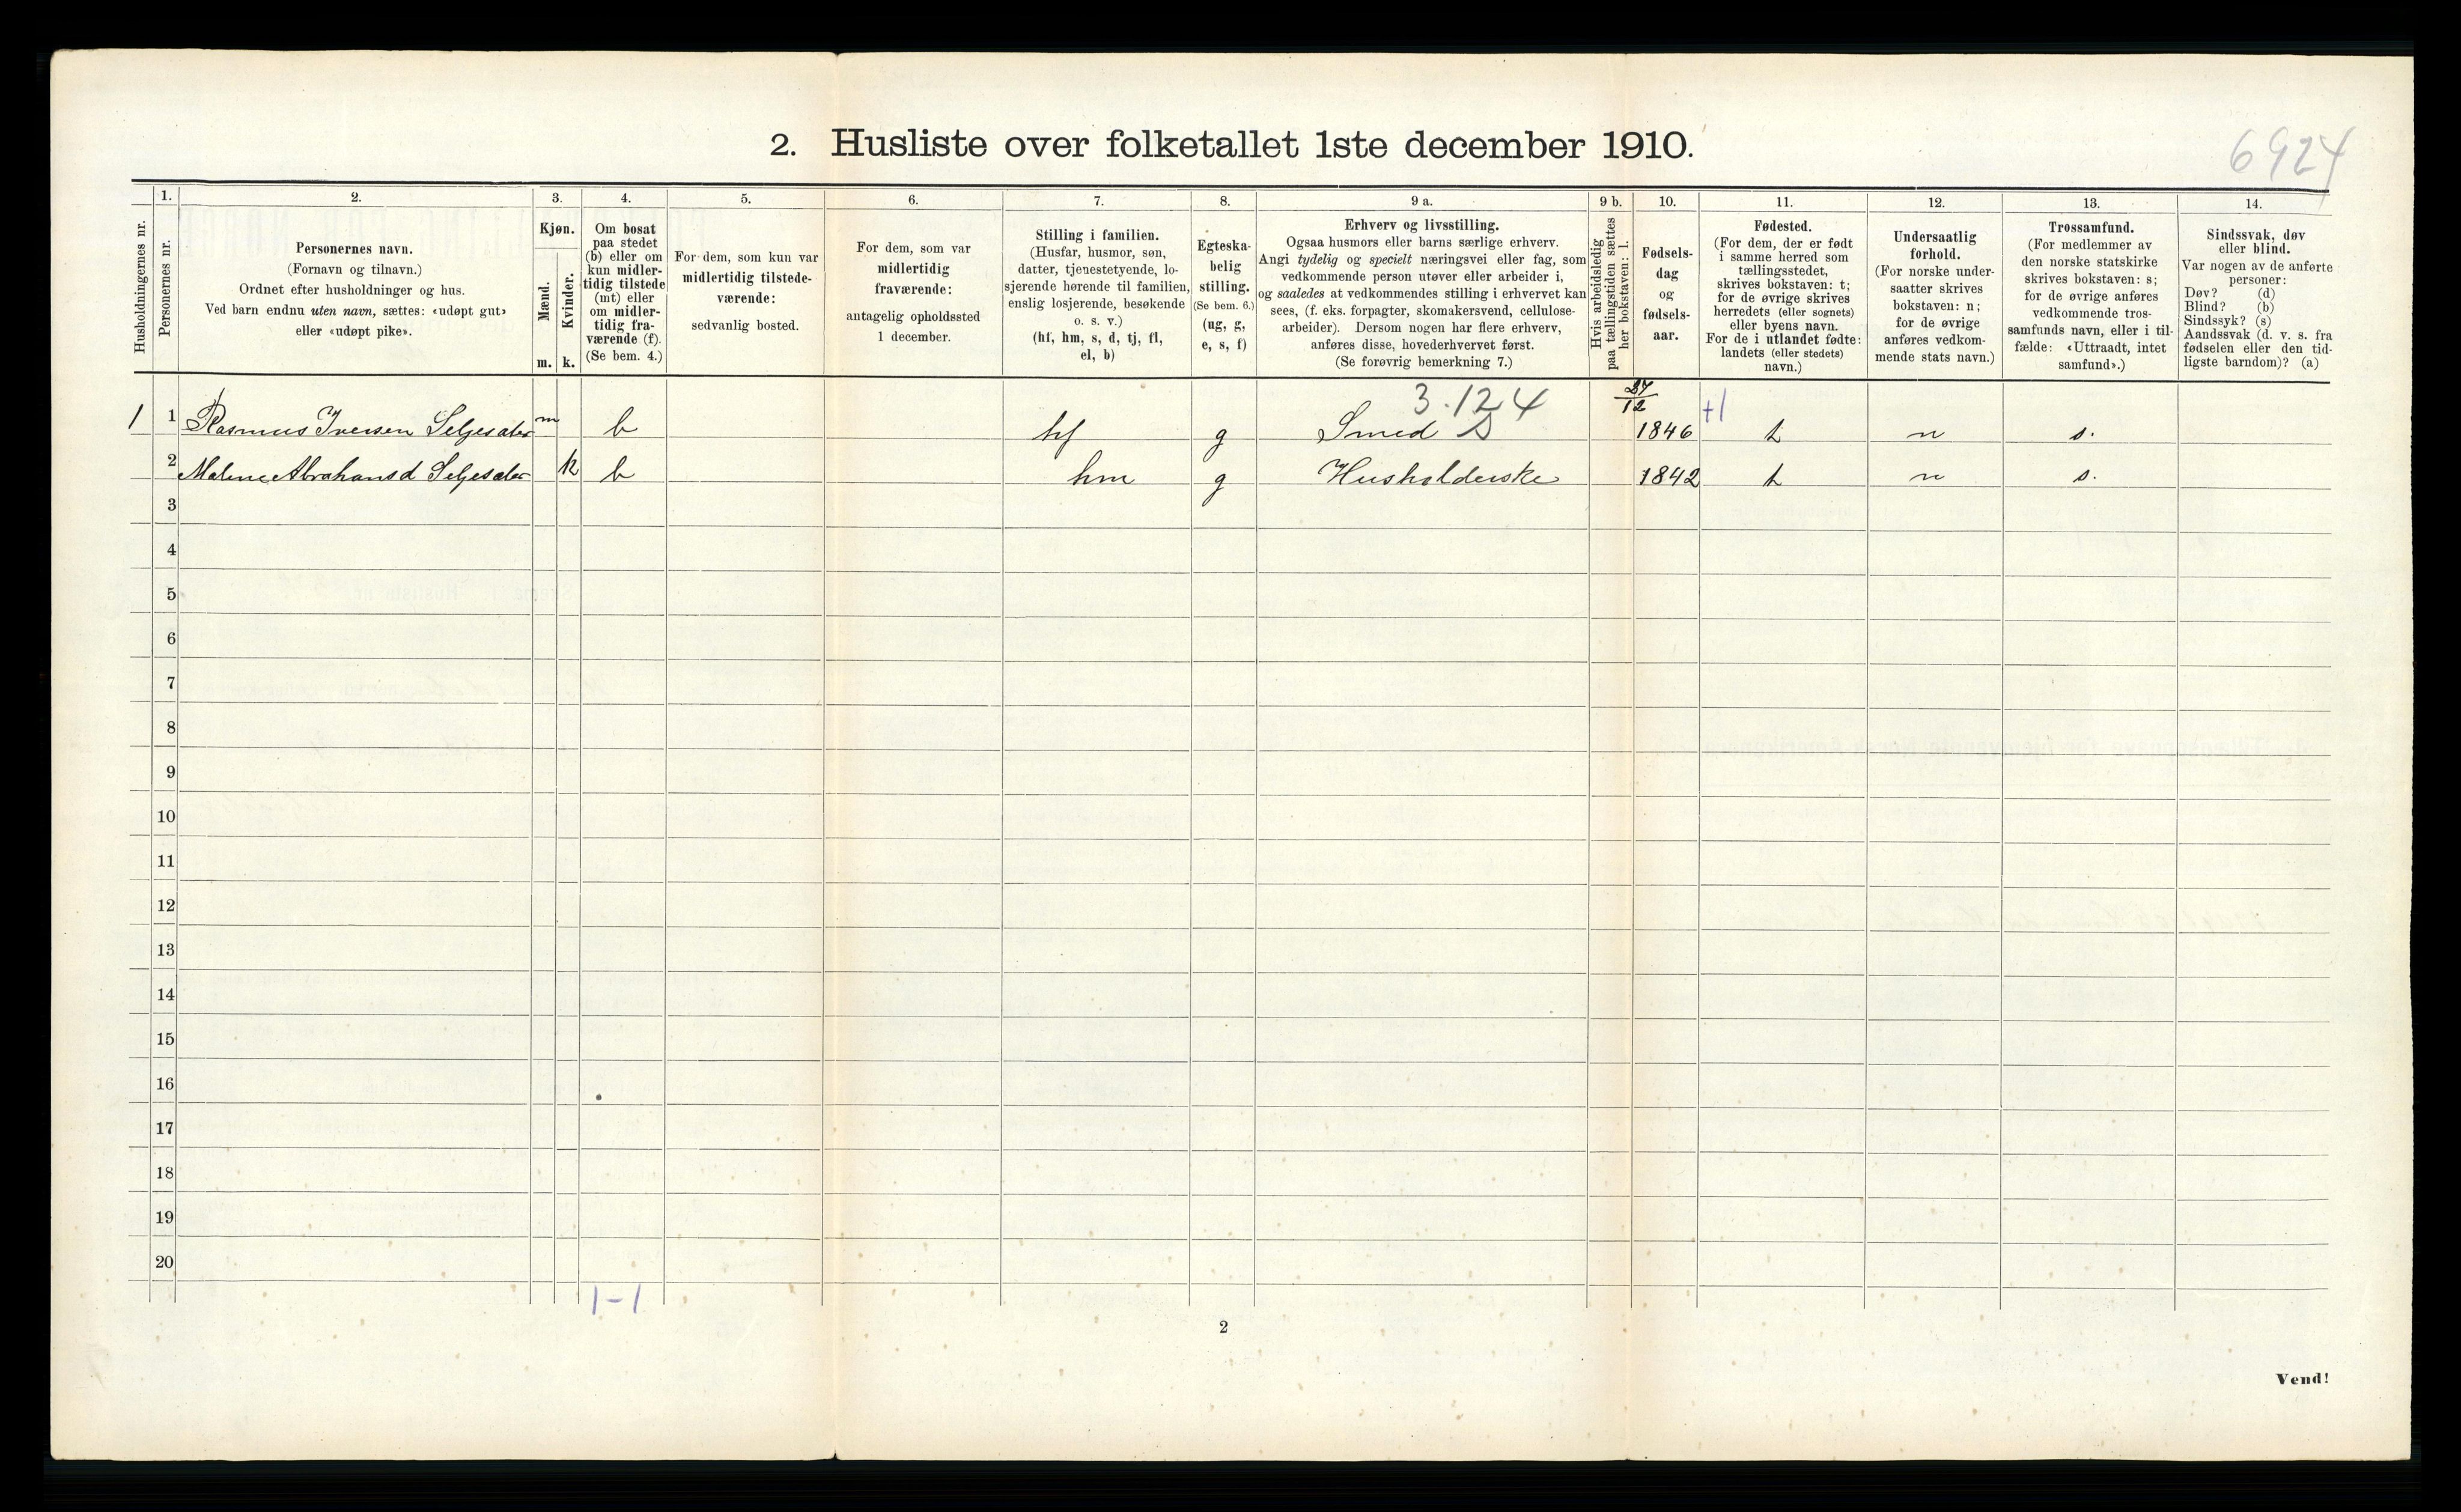 2. Husliste over folketallet 1ste december 1910.
6924
Husholdningernes nr.
1.
Personernes nr.
2.
Personernes navn.
(Fornavn og tilnavn.)
Ordnet efter husholdninger og hus.
Ved barn endnu uten navn, sættes: «udøpt gut»
eller «udøpt pike».
3.
Kjøn.
Mænd.
Kvinder.
m. k.
4.
Om bosat
paa stedet
(b) eller om
kun midler-
tidig tilstede
(mt) eller
om midler-
tidig fra-
værende (f).
(Se bem. 4.)
5.
For dem, som kun var
midlertidig tilstede-
værende:
sedvanlig bosted.
6.
For dem, som var
midlertidig
fraværende:
antagelig opholdssted
1 december.
7.
Stilling i familien.
(Husfar, husmor, søn,
datter, tjenestetyende, lo-
sjerende hørende til familien,
enslig losjerende, besøkende
o. s. v.)
(hf, hm, s, d, tj, fl,
el, b)
8.
Egteska-
belig
stilling.
(Se bem. 6.)
(ug, g,
e, s, f)
9 a.
Erhverv og livsstilling.
Ogsaa husmors eller barns særlige erhverv.
Angi tydelig og specielt næringsvei eller fag, som
vedkommende person utøver eller arbeider i,
og saaledes at vedkommendes stilling i erhvervet kan
sees, (f. eks. forpagter, skomakersvend, cellulose-
arbeider). Dersom nogen har flere erhverv,
anføres disse, hovederhvervet først.
(Se forøvrig bemerkning 7.)
9 b.
Hvis arbeidsledig
paa tællingstiden sættes
her bokstaven: l.
10.
Fødsels-
dag
og
fødsels-
aar.
11.
Fødested.
(For dem, der er født
i samme herred som
tællingsstedet,
skrives bokstaven: t;
for de øvrige skrives
herredets (eller sognets)
eller byens navn.
For de i utlandet fødte:
landets (eller stedets)
navn.)
12.
Undersaatlig
forhold.
(For norske under-
saatter skrives
bokstaven: n;
for de øvrige
anføres vedkom-
mende stats navn.)
13.
Trossamfund.
(For medlemmer av
den norske statskirke
skrives bokstaven: s;
for de øvrige anføres
vedkommende tros-
samfunds navn, eller i til-
fælde: «Uttraadt, intet
samfund».)
14.
Sindssvak, døv
eller blind.
Var nogen av de anførte
personer:
Døv? (d)
Blind? (b)
Sindssyk? (s)
Aandssvak (d. v. s. fra
fødselen eller den tid-
ligste barndom)? (a)
3.124 27/12 +1
1 1 Rasmus Iversen Seljesæter m b hf g Smed S 1846 t n s.
2 Malene Abrahamsd Seljesæter k b hm g Husholderske 1842 t n s.
3
4
5
6
7
8
9
10
11
12
13
14
15
16
17
18
19
20
1-1
2
Vend!